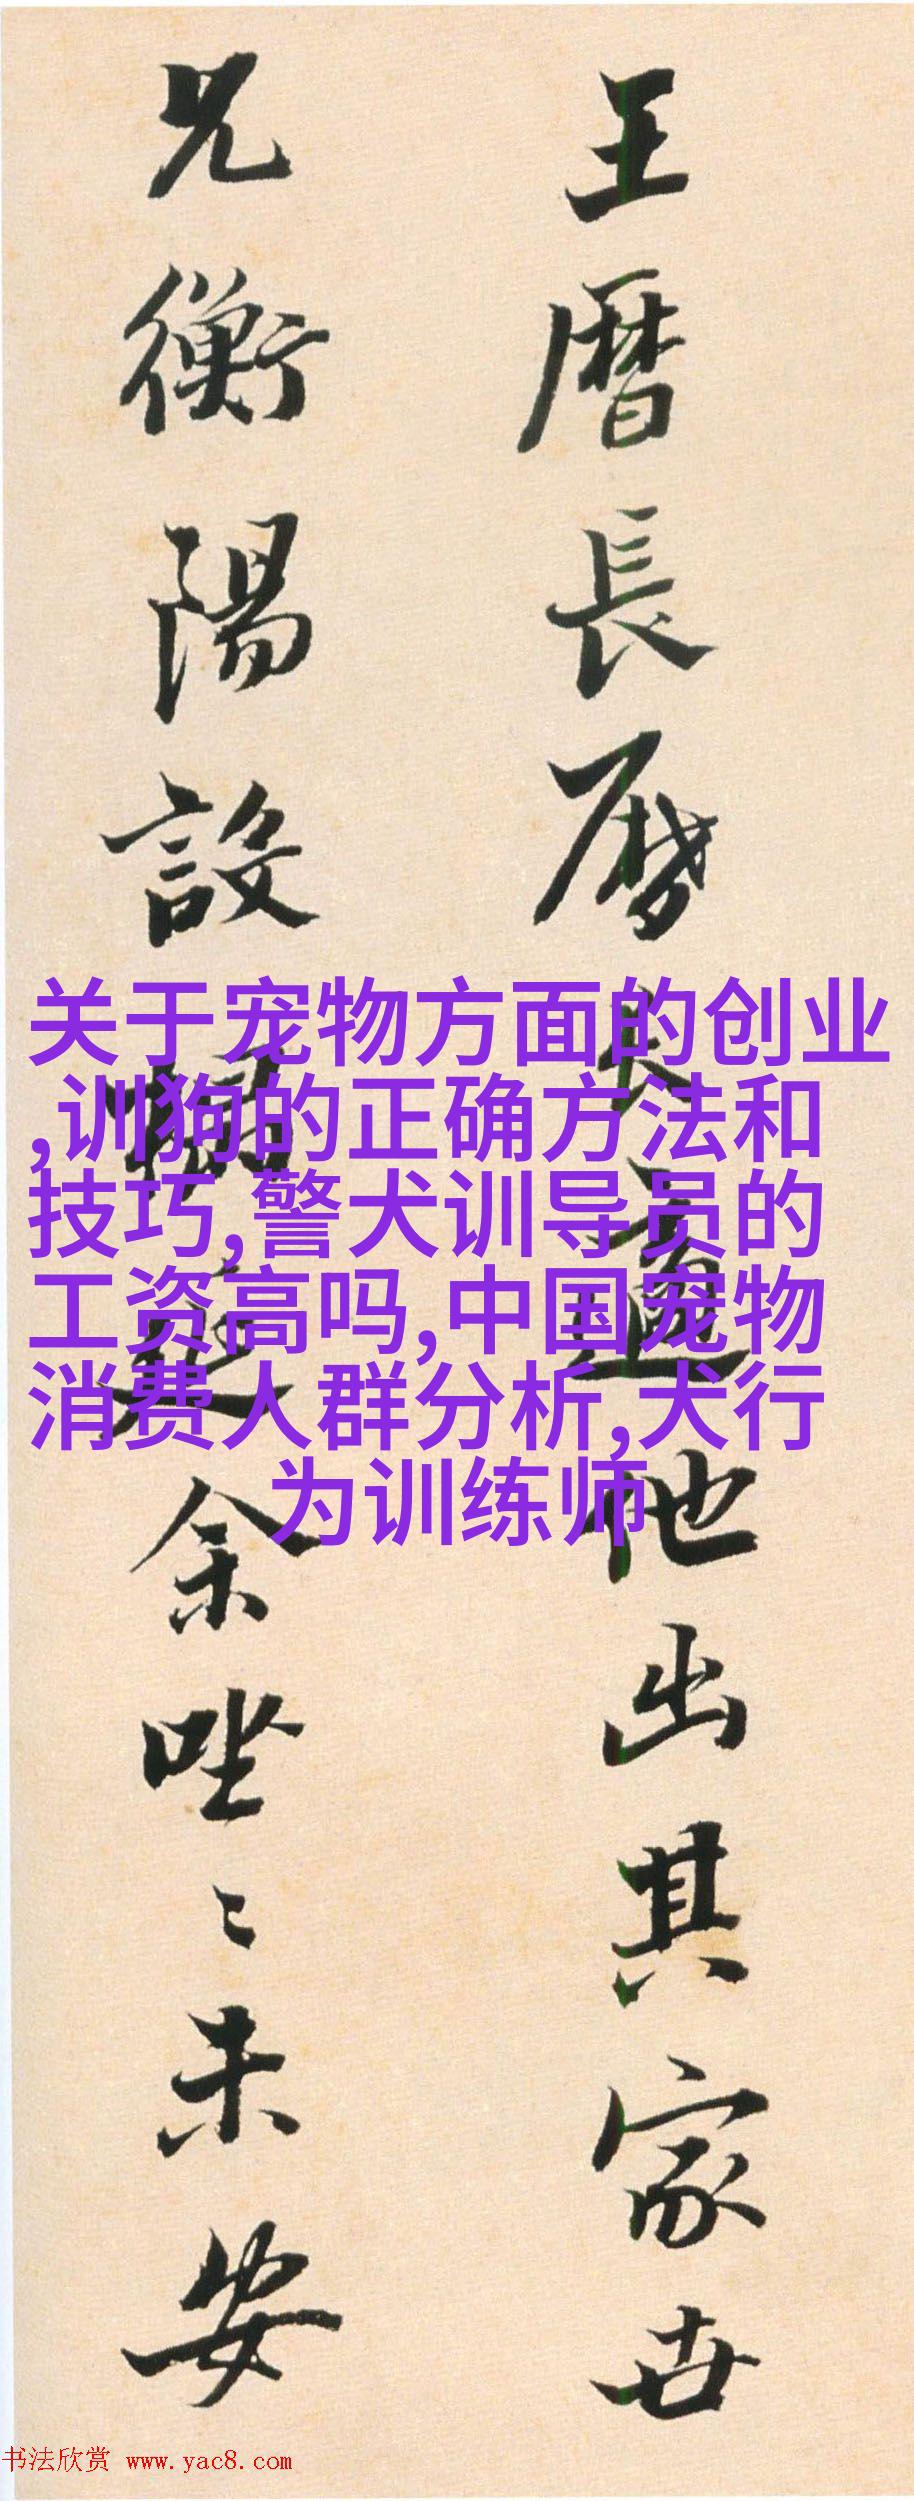 王曆長曆
大適
他出其家世
兄衡陽設
余唑〻未安
关于宠物方面的创业
,训狗的正确方法和
技巧,警犬训导员的
工资高吗,中国宠物
消费人群分析,犬行
为训练师
书法欣赏 www.yac8.com